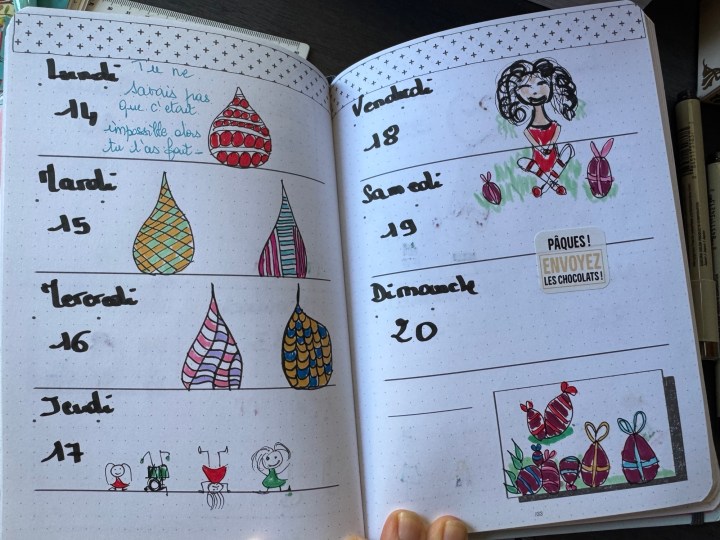 Lundi
14
Tu ne
savais pas
que c'était
impossible alors
tu l'as fait -
Mardi
15
Mercredi
16
Jeudi
17
Vendredi
18
Samedi
19
PÂQUES !
ENVOYEZ
LES CHOCOLATS !
Dimanche
20